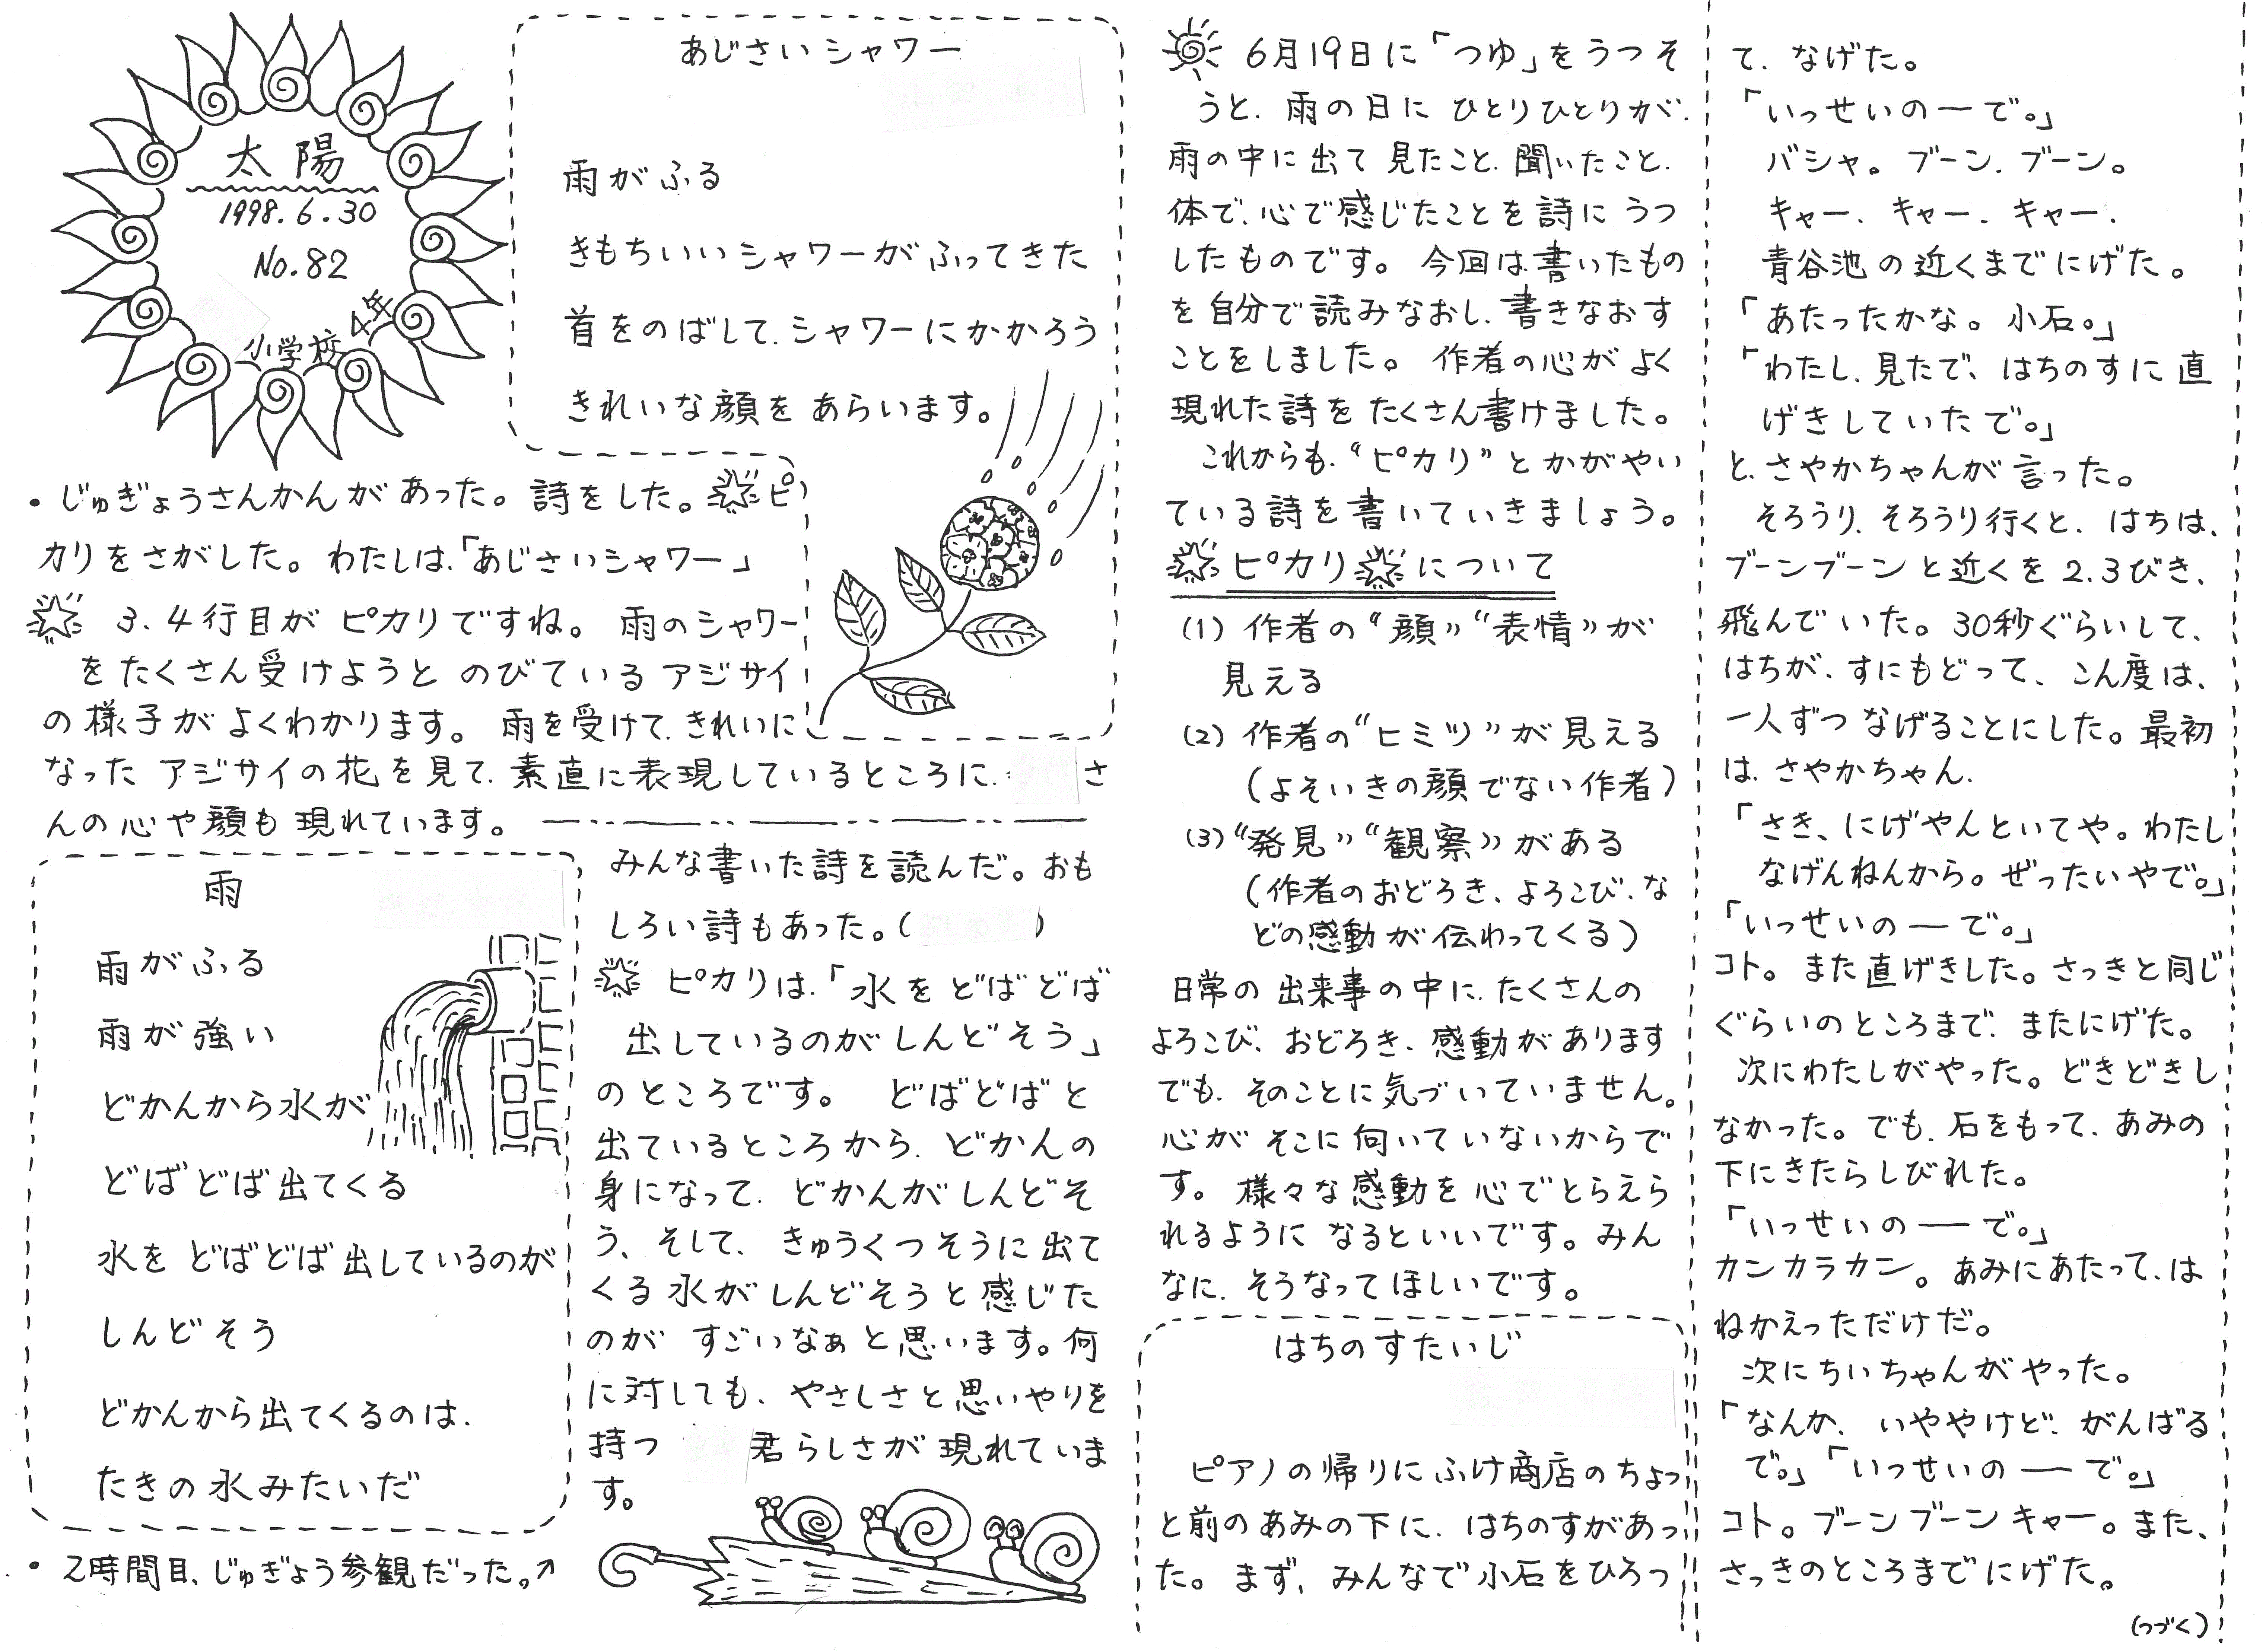 太陽
1998.6.30
No.82
小学校4年
あじさいシャワー
雨がふる
きもちいいシャワーがふってきた
首をのばして、シャワーにかかろう
きれいな顔を あらいます。
・じゅぎょうさんかんがあった。詩をした。ピ
カリをさがした。わたしは、「あじさいシャワー」
3、4行目が ピカリですね。雨のシャワー
をたくさん受けようと のびている アジサイ
の様子が よくわかります。雨を受けて、きれいに
なった アジサイの花を見て、素直に表現しているところに、さ
んの心や顔も現れています。
雨
雨がふる
雨が強い
どかんから水が
どばどば出てくる
水を どばどば出しているのが
しんどそう
どかんから出てくるのは、
たきの水みたいだ
・2時間目、じゅぎょう参観だった。↗
みんな書いた詩を読んだ。おも
しろい詩もあった。( )
ピカリは、「水を どばどば
出しているのがしんどそう」
のところです。 どばどばと
出ているところから、どかんの
身になって、どかんがしんどそ
う、そして、きゅうくつそうに出て
くる水がしんどそうと感じた
のが すごいなぁと思います。何
に対しても、やさしさと思いやりを
持つ 君らしさが現れていま
す。
6月19日に「つゆ」をうつそ
うと、雨の日に ひとりひとりが、
雨の中に出て 見たこと、聞いたこと、
体で、心で感じたことを詩に うつ
したものです。今回は、書いたもの
を自分で読みなおし、書きなおす
ことをしました。作者の心が よく
現れた詩を たくさん書けました。
これからも、“ピカリ”と かがやい
ている詩を書いていきましょう。
ピカリについて
(1) 作者の“顔”“表情”が
見える
(2) 作者の“ヒミツ”が見える
(よそいきの顔でない作者)
(3) “発見”“観察”がある
(作者のおどろき、よろこび、な
どの感動が伝わってくる)
日常の出来事の中に、たくさんの
よろこび、おどろき、感動があります
でも、そのことに気づいていません。
心が そこに向いていないからで
す。様々な感動を心でとらえら
れるように なるといいです。みん
なに、そうなってほしいです。
はちのすたいじ
ピアノの帰りに ふけ商店のちょっ
と前のあみの下に、はちのすがあっ
た。まず、みんなで小石をひろっ
て、なげた。
「いっせいの―で。」
バシャ。ブーン、ブーン。
キャー、キャー、キャー、
青谷池の近くまでにげた。
「あたったかな。小石。」
「わたし、見たで、はちのすに直
げきしていたで。」
と、さやかちゃんが言った。
そろうり、そろうり行くと、はちは、
ブーンブーンと近くを2、3びき、
飛んでいた。30秒ぐらいして、
はちが、すにもどって、こん度は、
一人ずつ なげることにした。最初
は、さやかちゃん、
「さき、にげやんといてや。わたし
なげんねんから。ぜったいやで。」
「いっせいの―で。」
コト。また直げきした。さっきと同じ
ぐらいのところまで、またにげた。
次にわたしがやった。どきどきし
なかった。でも、石をもって、あみの
下にきたらしびれた。
「いっせいの―で。」
カンカラカン。あみにあたって、は
ねかえっただけだ。
次にちいちゃんがやった。
「なんか、いややけど、がんばる
で。」「いっせいの―で。」
コト。ブーンブーン キャー。また、
さっきのところまでにげた。
(つづく)